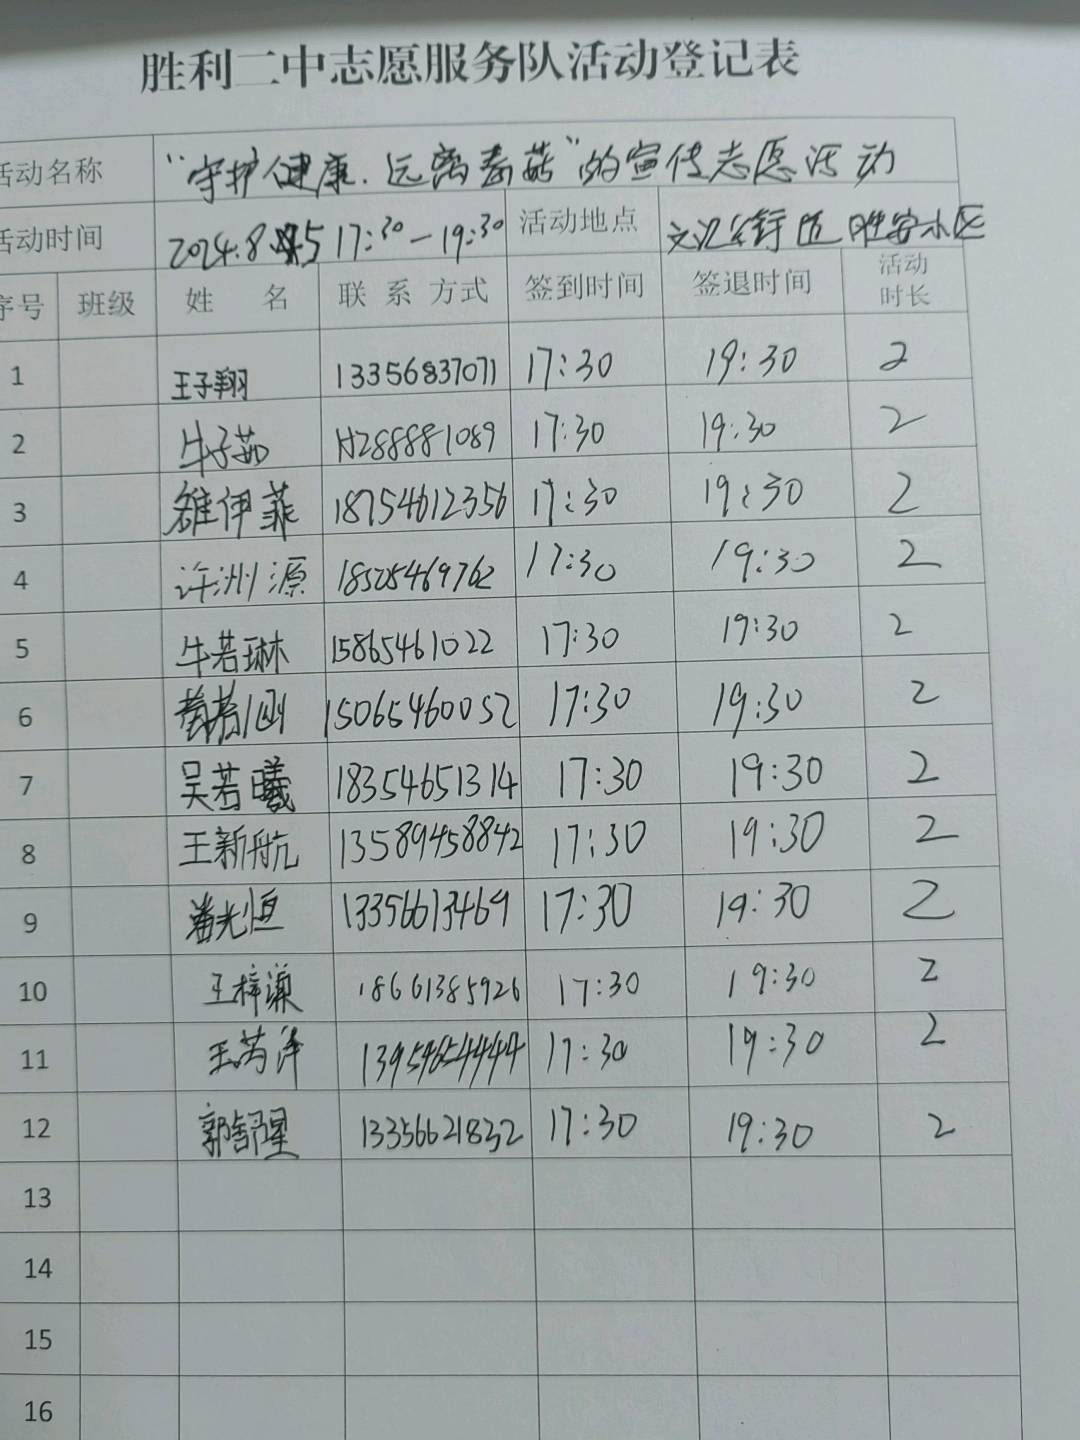 胜利二中志愿服务队活动登记表
活动名称 “守护健康.远离毒菇”的宣传志愿活动
活动时间 2024.8 5 17:30-19:30 活动地点 文汇街道 胜安小区
序号 班级 姓 名 联系方式 签到时间 签退时间 活动时长
1 王子翔 13356837071 17:30 19:30 2
2 牛子茹 17:30 19:30 2
3 伊菲 18754612356 17:30 19:30 2
4 许洲源 17:30 19:30 2
5 牛若琳 15865461022 17:30 19:30 2
6 15065460052 17:30 19:30 2
7 吴若曦 18354651314 17:30 19:30 2
8 王新航 13589458842 17:30 19:30 2
9 潘光恒 13356613469 17:30 19:30 2
10 王梓谦 18661385926 17:30 19:30 2
11 13954654444 17:30 19:30 2
12 13356621832 17:30 19:30 2
13
14
15
16